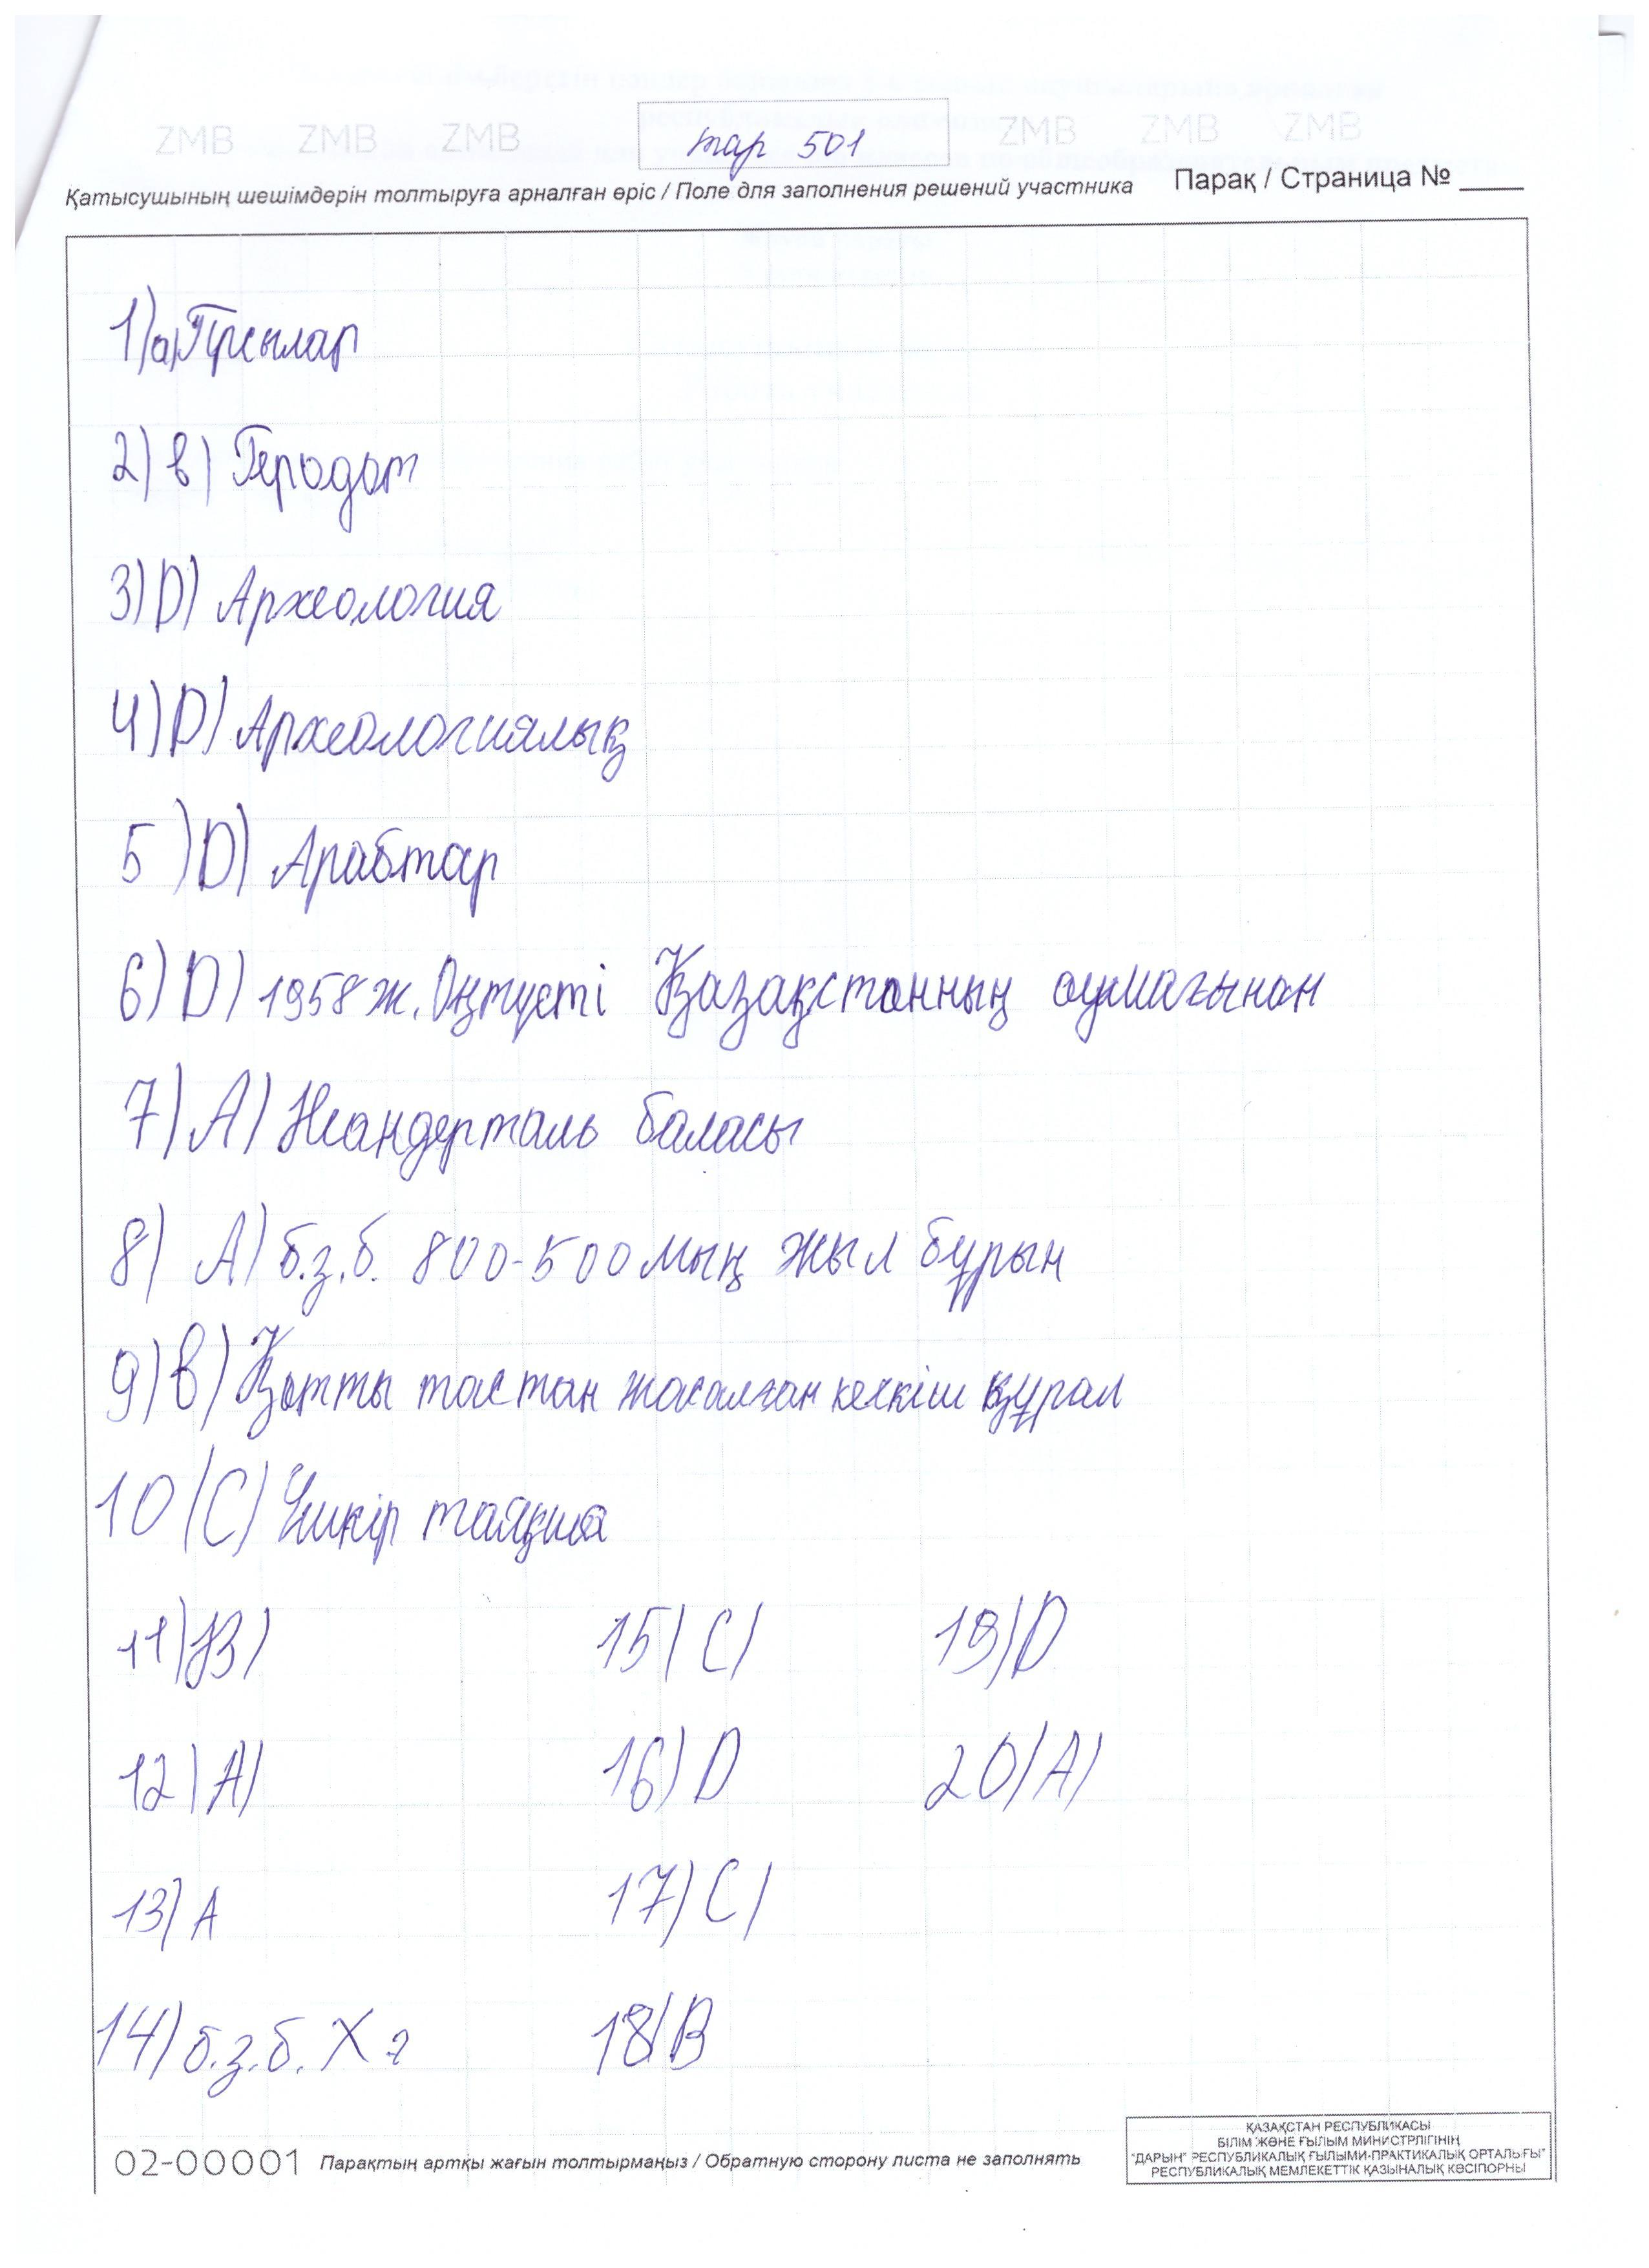 ZMB ZMB ZMB тар 501 ZMB ZMB ZMB
Қатысушының шешімдерін толтыруға арналған өріс / Поле для заполнения решений участника Парақ / Страница № ____
1) а)
2) в) Геродот
3) D) Археология
4) D) Археологиялық
5) D) Арабтар
6) D) 1958 ж. Оңтүсті Қазақстанның аумағынан
7) A) Неандерталь баласы
8) A) б.з.б. 800-500 мың жыл бұрын
9) в) Қатты тастан жасалған кескіш құрал
10 (C) таяқша
11) B) 15) C) 19) D
12) A) 16) D 20) A)
13) A 17) C)
14) б.з.б. X ғ 18) B
02-00001 Парақтың артқы жағын толтырмаңыз / Обратную сторону листа не заполнять
ҚАЗАҚСТАН РЕСПУБЛИКАСЫ
БІЛІМ ЖӘНЕ ҒЫЛЫМ МИНИСТРЛІГІНІҢ
"ДАРЫН" РЕСПУБЛИКАЛЫҚ ҒЫЛЫМИ-ПРАКТИКАЛЫҚ ОРТАЛЫҒЫ"
РЕСПУБЛИКАЛЫҚ МЕМЛЕКЕТТІК ҚАЗЫНАЛЫҚ КӘСІПОРНЫ